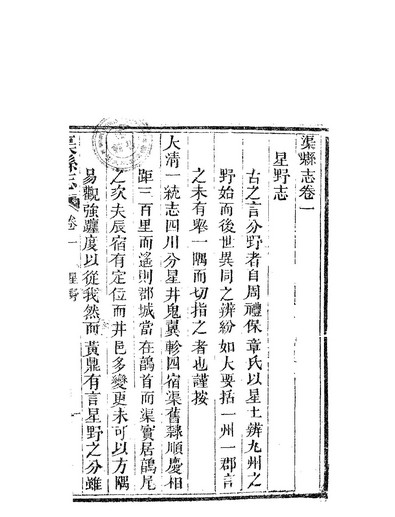 渠縣志卷一
星野志
古之言分野者自周禮保章氏以星土辨九州之
野始而後世異同之辨紛如大要括一州一郡言
之未有舉一隅而切指之者也謹按
大清一統志四川分星井鬼翼軫四宿渠舊隸順慶相
距三百里而遙則郡城當在鶉首而渠實居鶉尾
之次夫辰宿有定位而井邑多變更未可以方隅
易觀強躔度以從我然而黃鼎有言星野之分雖
渠縣志 卷一 星野